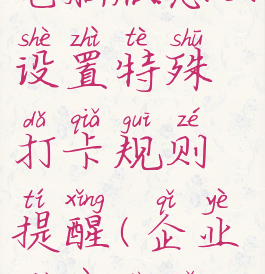 shè zhì tè shū
设置特殊
dǎ qiǎ guī zé
打卡规则
tí xǐng qǐ yè
提醒(企业